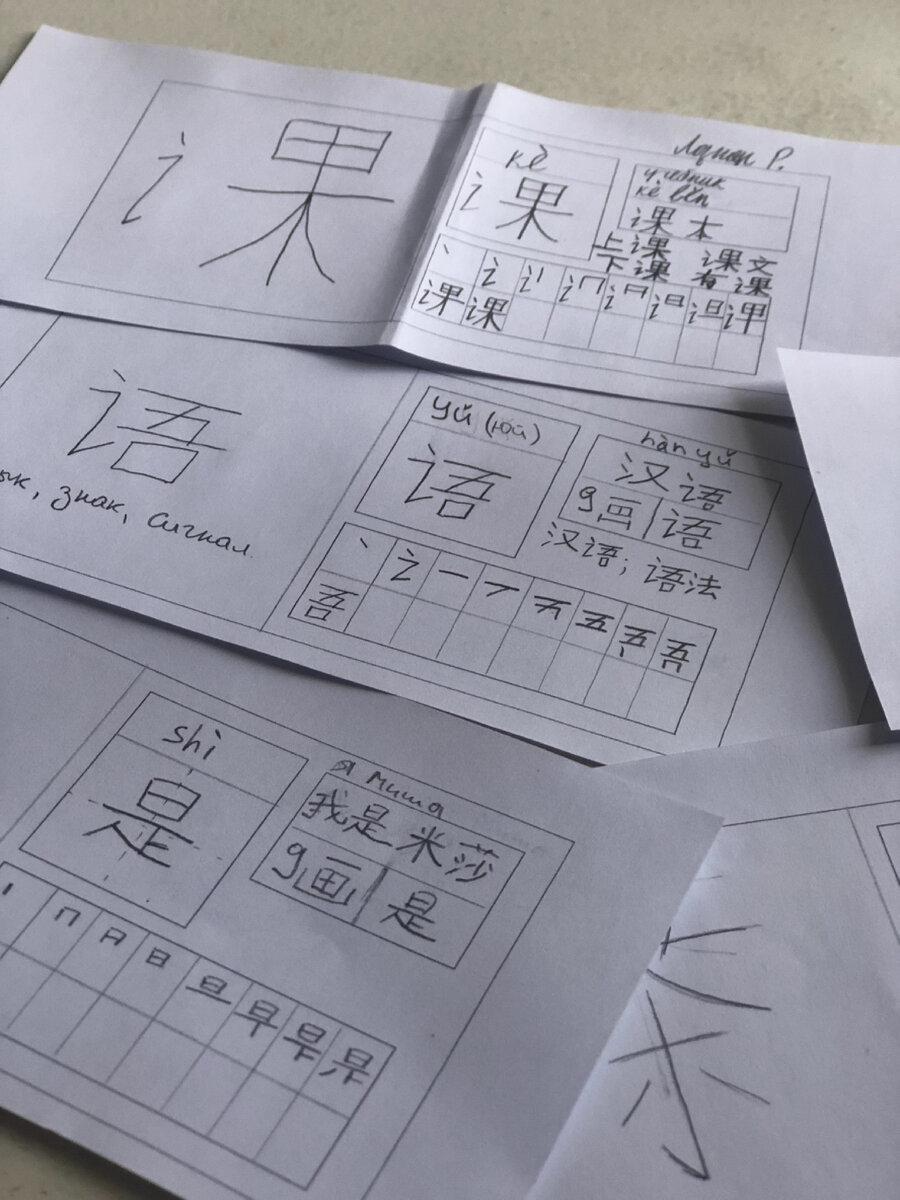 课
kè
课
учебник
kè běn
课本
上课 课文
下课 有课
丶 讠 课 课
语
знак, сигнал
yǔ (юй)
语
hàn yǔ
汉语
9画 语
汉语; 语法
丶 讠 一 丆 五 五 吾
吾
shì
是
я миша
我是米莎
9画 是
丨 冂 日 日 旦 早 是